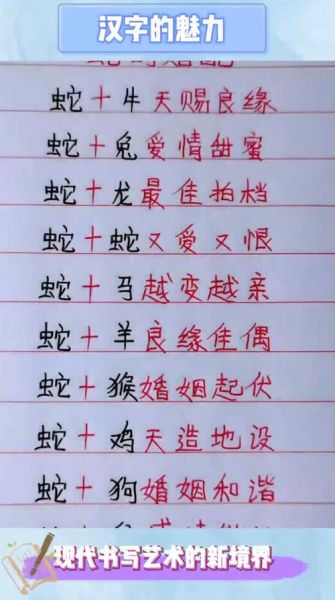 汉字的魅力
蛇+牛天赐良缘
蛇+兔爱情甜蜜
蛇+龙最佳拍档
蛇+蛇又爱又恨
蛇+马越变越亲
蛇+羊良缘佳偶
蛇+猴婚姻起伏
蛇+鸡天造地设
蛇+狗婚姻和谐
现代书写艺术的新境界